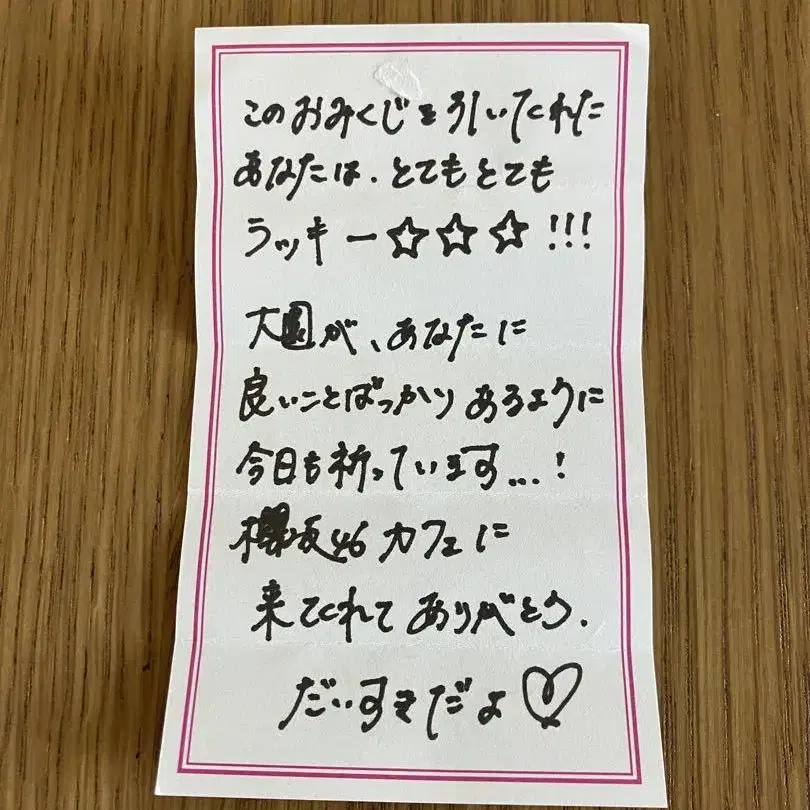 このおみくじを引いてくれた
あなたは、とてもとても
ラッキー☆☆☆!!!
大園が、あなたに
良いことばっかりあるように
今日も祈っています...!
欅坂46カフェに
来てくれてありがとう.
だいすきだよ♡